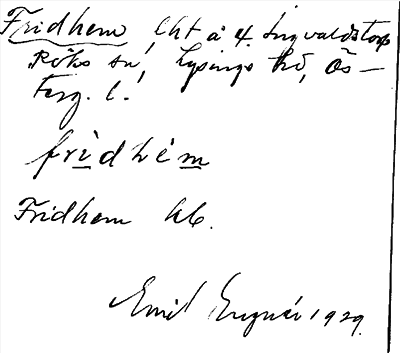 Fridhem, lht å f. Ingvaldstorp
Röks sn, Lysings hd, Ös-
terg. l.
fridhèm
Fridhem hb.
Emil 1929.